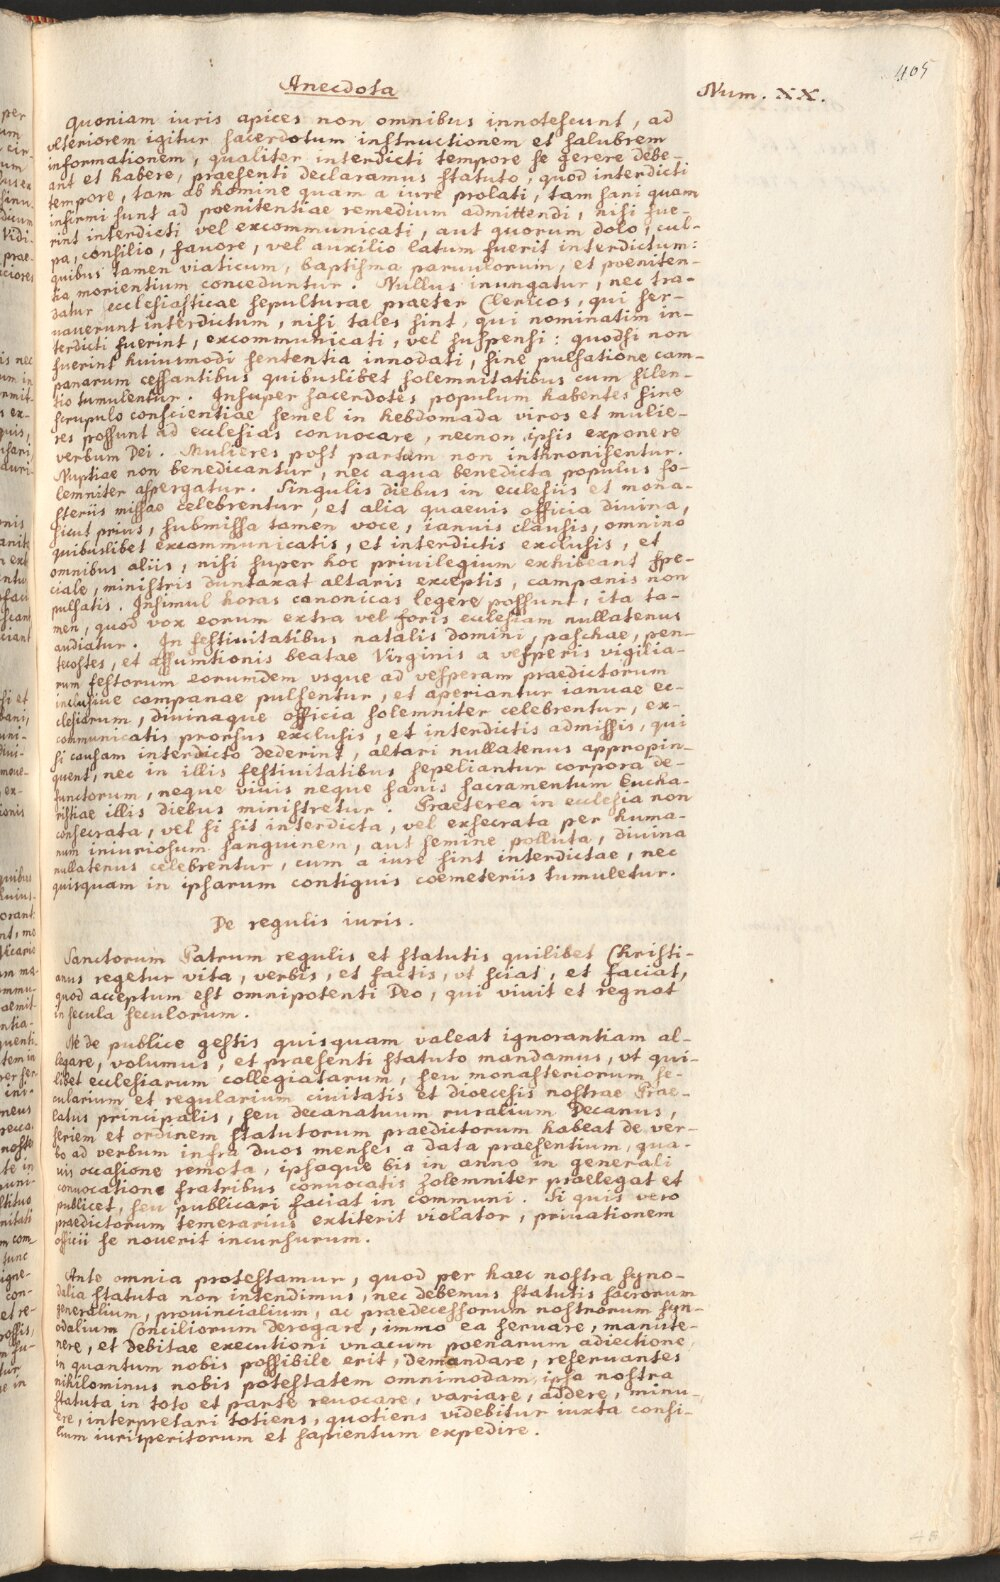 405
Anecdota
Num. XX.
Quoniam iuris apices non omnibus innotescunt, ad
vlteriorem igitur sacerdotum instructionem et salubrem
informationem, qualiter interdicti tempore se gerere debe-
ant et habere, praesenti declaramus statuto, quod interdicti
tempore, tam ab homine quam a iure prolati, tam sani quam
infirmi sunt ad poenitentiae remedium admittendi, nisi fue-
rint interdicti vel excommunicati, aut quorum dolo, cul-
pa, consilio, fauore, vel auxilio latum fuerit interdictum:
quibus tamen viaticum, baptisma paruulorum, et poeniten-
tia morientium conceduntur. Nullus inungatur, nec tra-
datur ecclesiasticae sepulturae praeter Clericos, qui ser-
uauerunt interdictum, nisi tales sint, qui nominatim in-
terdicti fuerint, excommunicati, vel suspensi: quodsi non
fuerint huiusmodi sententia innodati, sine pulsatione cam-
panarum cessantibus quibuslibet solemnitatibus cum silen-
tio tumulentur. Insuper sacerdotes populum habentes sine
scrupulo conscientiae semel in hebdomada viros et mulie-
res possunt ad ecclesias conuocare, necnon ipsis exponere
verbum Dei. Mulieres post partum non inthronisentur.
Nuptiae non benedicantur, nec aqua benedicta populus so-
lemniter aspergatur. Singulis diebus in ecclesiis et mona-
steriis missae celebrentur, et alia quaeuis officia diuina,
sicut prius, submissa tamen voce, ianuis clausis, omnino
quibuslibet excommunicatis, et interdictis exclusis, et
omnibus aliis, nisi super hoc priuilegium exhibeant spe-
ciale, ministris duntaxat altaris exceptis, campanis non
pulsatis. Insimul horas canonicas legere possunt, ita ta-
men, quod vox eorum extra vel foris ecclesiam nullatenus
audiatur. In festiuitatibus natalis domini, paschae, pen-
tecostes, et assumtionis beatae Virginis a vesperis vigilia-
rum festorum eorumdem vsque ad vesperam praedictorum
inclusiue campanae pulsentur, et aperiantur ianuae ec-
clesiarum, diuinaque officia solemniter celebrentur, ex-
communicatis prorsus exclusis, et interdictis admissis, qui
si causam interdicto dederint, altari nullatenus appropin-
quent, nec in illis festiuitatibus sepeliantur corpora de-
functorum, neque viuis neque sanis sacramentum Eucha-
ristiae illis diebus ministretur. Praeterea in ecclesia non
consecrata, vel si sit interdicta, vel exsecrata per huma-
num iniuriosum sanguinem, aut semine polluta, diuina
nullatenus celebrentur, cum a iure sint interdictae, nec
quisquam in ipsarum contiguis coemeteriis tumuletur.
De regulis iuris.
Sanctorum Patrum regulis et statutis quilibet Christi-
anus regetur vita, verbis, et factis, vt sciat, et faciat,
quod acceptum est omnipotenti Deo, qui viuit et regnat
in secula seculorum.
Ne de publice gestis quisquam valeat ignorantiam al-
legare, volumus, et praesenti statuto mandamus, vt qui-
libet ecclesiarum collegiatarum, seu monasteriorum se-
cularium et regularium ciuitatis et dioecesis nostrae Prae-
latus principalis, seu decanatuum ruralium Decanus,
seriem et ordinem statutorum praedictorum habeat de ver-
bo ad verbum infra duos menses a data praesentium, qua-
uis occasione remota, ipsaque bis in anno in generali
conuocatione fratribus conuocatis solemniter praelegat et
publicet, seu publicari faciat in communi. Si quis vero
praedictorum temerarius extiterit violator, priuationem
officii se nouerit incursurum.
Ante omnia protestamur, quod per haec nostra syno-
dalia statuta non intendimus, nec debemus statutis sacrorum
generalium, prouincialium, ac praedecessorum nostrorum syn-
odalium Conciliorum derogare, immo ea seruare, manute-
nere, et debitae executioni vnacum poenarum adiectione
in quantum nobis possibile erit, demandare, reseruantes
nihilominus nobis potestatem omnimodam ipsa nostra
statuta in toto et parte reuocare, variare, addere, minu-
ere, interpretari totiens, quotiens videbitur iuxta consi-
lium iurisperitorum et sapientum expedire.